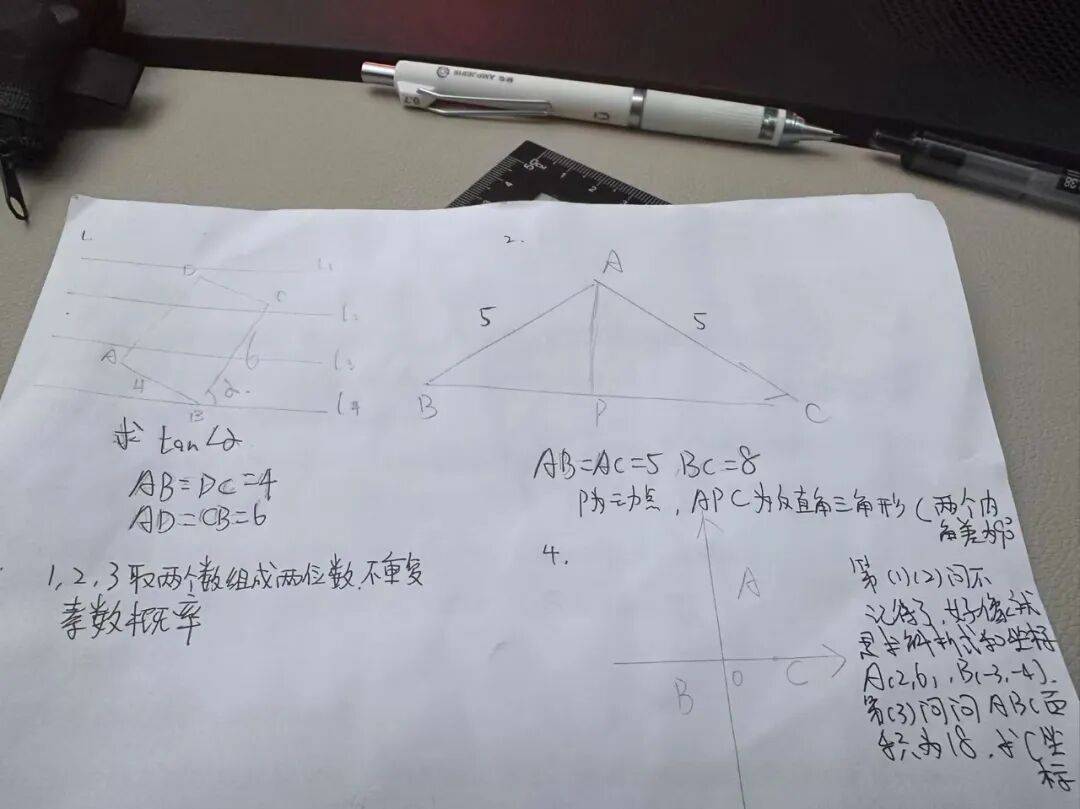 1.
D
l₁
C
l₂
A
6
l₃
4
α
B
l₄
求 tan∠α
AB=DC=4
AD=CB=6
2.
A
5
5
B
P
C
AB=AC=5 BC=8
P为动点,APC为仅直角三角形(两个内
角差为90°
1,2,3取两个数组成两位数,不重复
素数概率
4.
A
B
O
C
第(1)(2)问不
记得了,好像就
是求解析式和坐标
A(2,6),B(-3,-4).
第(3)问问ABC面
积为18,求C坐
标
0.7